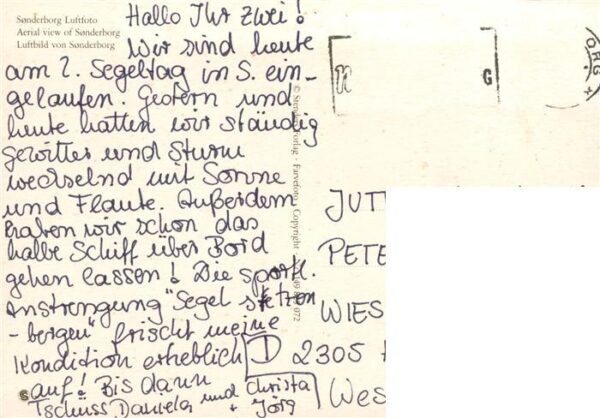 Sønderborg Luftfoto
Aerial view of Sønderborg
Luftbild von Sønderborg
Hallo Ihr zwei!
Wir sind heute
am 2. Segeltag in S. ein-
gelaufen. Gestern und
heute hatten wir ständig
Gewitter und Sturm
wechselnd mit Sonne
und Flaute. Außerdem
haben wir schon das
halbe Schiff über Bord
gehen lassen! Die sportl.
Anstrengung "Segel setzen
-bergen" frischt meine
Kondition erheblich
auf! Bis dann
Tschuss Daniela und Christa
+ Jörg
Forlag - Farvefoto - Copyright
072
G
ORG
JUT
PETE
WIES
D 2305
Wes